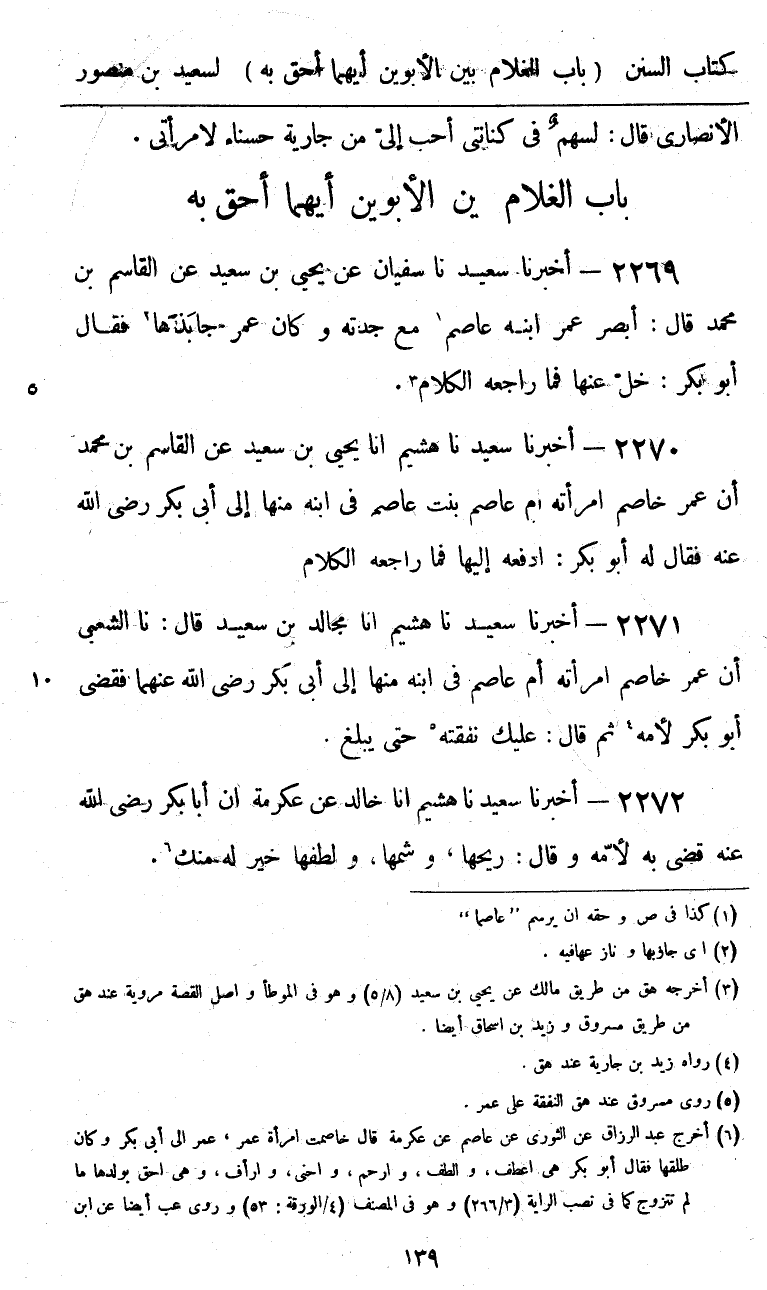 كتاب السنن ( باب الغلام بين الأبوين أيهما أحق به ) لسعيد بن منصور
الأنصارى قال : لسهم فى كنانتى أحب إلىّ من جارية حسناء لامرأتى .
باب الغلام ين الأبوين أيهما أحق به
٢٢٦٩ – أخبرنا سعيد نا سفيان عن يحيى بن سعيد عن القاسم بن
محمد قال : أبصر عمر ابنه عاصم١ مع جدته و كان عمر جابذها٢ فقال
أبو بكر : خلّ عنها فما راجعه الكلام٣ .
٥
٢٢٧٠ – أخبرنا سعيد نا هشيم انا يحيى بن سعيد عن القاسم بن محمد
أن عمر خاصم امرأته ام عاصم بنت عاصم فى ابنه منها إلى أبى بكر رضى الله
عنه فقال له أبو بكر : ادفعه إليها فما راجعه الكلام
٢٢٧١ – أخبرنا سعيد نا هشيم انا مجالد بن سعيد قال : نا الشعبى
أن عمر خاصم امرأته أم عاصم فى ابنه منها إلى أبى بكر رضى الله عنهما فقضى
١٠
أبو بكر لأمه٤ ثم قال : عليك نفقته٥ حتى يبلغ .
٢٢٧٢ – أخبرنا سعيد نا هشيم انا خالد عن عكرمة ان أبا بكر رضى الله
عنه قضى به لأمّه و قال : ريحها ، و شمها ، و لطفها خير له منك٦ .
(١) كذا فى ص و حقه ان يرسم ”عاصما“
(٢) اى جاذبها و ناز عهافيه .
(٣) أخرجه هق من طريق مالك عن يحيى بن سعيد (٥/٨) و هو فى الموطأ و اصل القصة مروية عند هق
من طريق مسروق و زيد بن اسحاق أيضا .
(٤) رواه زيد بن جارية عند هق .
(٥) روى مسروق عند هق النفقة على عمر .
(٦) أخرج عبد الرزاق عن الثورى عن عاصم عن عكرمة قال خاصمت امرأة عمر ، عمر الى أبى بكر و كان
طلقها فقال أبو بكر هى اعطف ، و الطف ، و ارحم ، و احنى ، و ارأف ، و هى احق بولدها ما
لم تتزوج كما فى نصب الراية (٢٦٦/٣) و هو فى المصنف (٤/الورقة : ٥٣) و روى عب أيضا عن ابن
١٣٩